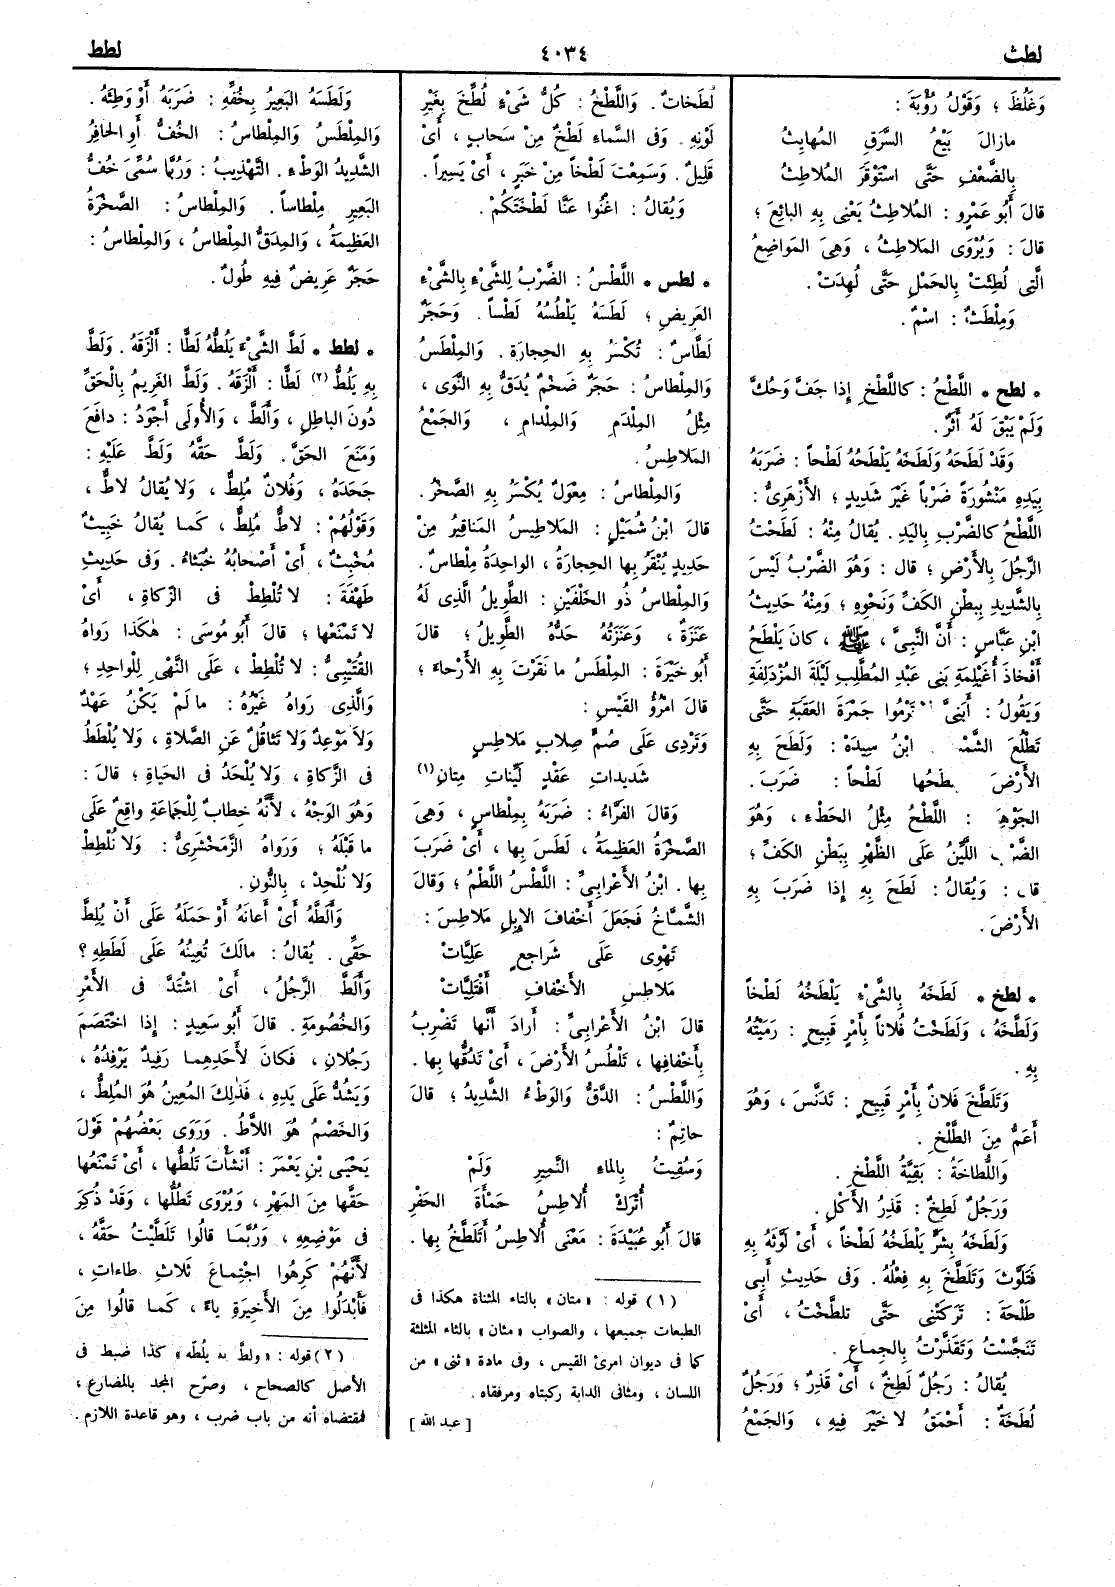 لطث
٤٠٣٤
لطط
وَغَلُظَ ؛ وَقَوْلُ رُؤْبَةَ :
مازالَ بَيْعُ السَّرَقِ المُهايِثُ
بِالضَّعْفِ حَتَّى اسْتَوْقَرَ المُلاطِثُ
قالَ أَبُو عَمْرٍو : المُلاطِثُ يَعْنِى بِهِ البائِعَ ؛
قالَ : وَيُرْوَى المَلاطِثُ ، وَهِىَ المَواضِعُ
الَّتِى لُطِثَتْ بِالحَمْلِ حَتَّى لُهِدَتْ .
وَمِلْطَثٌ : اسْمٌ .
* لطح * اللَّطْحُ : كاللَّطْخِ إِذا جَفَّ وَحُكَّ
وَلَمْ يَبْقَ لَهُ أَثَرٌ .
وَقَدْ لَطَحَهُ وَلَطَخَهُ يَلْطَحُهُ لَطْحاً : ضَرَبَهُ
بِيَدِهِ مَنْشُورَةً ضَرْباً غَيْرَ شَدِيدٍ ؛ الأَزْهَرِىُّ :
اللَّطْحُ كالضَّرْبِ بِاليَدِ . يُقالُ مِنْهُ : لَطَحْتُ
الرَّجُلَ بِالأَرْضِ ؛ قال : وَهُوَ الضَّرْبُ لَيْسَ
بِالشَّدِيدِ بِبَطْنِ الكَفِّ وَنَحْوِهِ ؛ وَمِنْهُ حَدِيثُ
ابْنِ عَبَّاسٍ : أَنَّ النَّبِىَّ ، ﷺ ، كانَ يَلْطَحُ
أَفْخاذَ أُغَيْلِمَةِ بَنِى عَبْدِ المُطَّلِبِ لَيْلَةَ المُزْدَلِفَةِ
وَيَقُولُ : أَبَنِىَّ تَرْمُوا جَمْرَةَ العَقَبَةِ حَتَّى
تَطْلُعَ الشَّمْـ . ابْنُ سِيدَهْ : وَلَطَحَ بِهِ
الأَرْضَ ـطَحُها لَطْحاً : ضَرَبَ .
الجَوْهَـ : اللَّطْحُ مِثْلُ الحَطْءِ ، وَهُوَ
الضَّرْبُ اللَّيِّنُ عَلَى الظَّهْرِ بِبَطْنِ الكَفِّ ؛
قالَ : وَيُقالُ : لَطَحَ بِهِ إِذا ضَرَبَ بِهِ
الأَرْضَ .
* لطخ * لَطَخَهُ بِالشَّىْءِ يَلْطَخُهُ لَطْخاً
وَلَطَّخَهُ ، وَلَطَخْتُ فُلاناً بِأَمْرٍ قَبِيحٍ : رَمَيْتُهُ
بِهِ .
وَتَلَطَّخَ فُلانٌ بِأَمْرٍ قَبِيحٍ : تَدَنَّسَ ، وَهُوَ
أَعَمُّ مِنَ الطَّلْخِ .
وَاللُّطاخَةُ : بَقِيَّةُ اللَّطْخِ .
وَرَجُلٌ لَطِخٌ : قَذِرُ الأَكْلِ .
وَلَطَخَهُ بِشَرٍّ يَلْطَخُهُ لَطْخاً ، أَىْ لَوَّثَهُ بِهِ
فَتَلَوَّثَ وَتَلَطَّخَ بِهِ فِعْلُهُ . وَفِى حَدِيثِ أَبِى
طَلْحَةَ : تَرَكَتْنِى حَتَّى تلطَّخْتُ ، أَىْ
تَنَجَّسْتُ وَتَقَذَّرْتُ بِالجِماعِ .
يُقالُ : رَجُلٌ لَطِخٌ ، أَىْ قَذِرٌ ؛ وَرَجُلٌ
لُطَخَةٌ : أَحْمَقُ لا خَيْرَ فِيهِ ، وَالجَمْعُ
لُطَخاتٌ . وَاللَّطْخُ : كُلُّ شَىْءٍ لُطِّخَ بِغَيْرِ
لَوْنِهِ . وَفِى السَّماءِ لَطْخٌ مِنْ سَحابٍ ، أَىْ
قَلِيلٌ . وَسَمِعْتُ لَطْخاً مِنْ خَبَرٍ ، أَىْ يَسِيراً .
وَيُقالُ : اغْنُوا عَنَّا لَطْخَتَكُمْ .
* لطس * اللَّطْسُ : الضَّرْبُ لِلشَّىْءِ بِالشَّىْءِ
العَرِيضِ ؛ لَطَسَهُ يَلْطُسُهُ لَطْساً . وَحَجَرٌ
لَطَّاسٌ : تُكْسَرُ بِهِ الحِجارَةُ . وَالمِلْطَسُ
وَالمِلْطاسُ : حَجَرٌ ضَخْمٌ يُدَقُّ بِهِ النَّوَى ،
مِثْلُ المِلْدَمِ وَالمِلْدامِ ، وَالجَمْعُ
المَلاطِسُ .
وَالمِلْطاسُ : مِعْوَلٌ يُكْسَرُ بِهِ الصَّخْرُ .
قالَ ابْنُ شُمَيْلٍ : المَلاطِيسُ المَناقِيرُ مِنْ
حَدِيدٍ يُنْقَرُ بِها الحِجارَةُ ، الواحِدَةُ مِلْطاسٌ .
وَالمِلْطاسُ ذُو الخَلْفَيْنِ : الطَّوِيلُ الَّذِى لَهُ
عَنَزَةٌ ، وَعَنَزَتُهُ حَدُّهُ الطَّوِيلُ ؛ قالَ
أَبُو خَيْرَةَ : المِلْطَسُ ما نَقَرْتَ بِهِ الأَرْحاءَ ؛
قالَ امْرُؤُ القَيْسِ :
وَتَرْدِى عَلَى صُمٍّ صِلابٍ مَلاطِسٍ
شَدِيداتِ عَقْدٍ لَيِّناتٍ مِتانِ (١)
وَقالَ الفَرَّاءُ : ضَرَبَهُ بِمِلْطاسٍ ، وَهِىَ
الصَّخْرَةُ العَظِيمَةُ ، لَطَسَ بِها ، أَىْ ضَرَبَ
بِها . ابْنُ الأَعْرابِىِّ : اللَّطْسُ اللَّطْمُ ؛ وَقالَ
الشَّمَّاخُ فَجَعَلَ أَخْفافَ الإِبِلِ مَلاطِسَ :
تَهْوِى عَلَى شَراجِعٍ عَلِيَّاتْ
مَلاطِسِ الأَخْفافِ أَفْتَلِيَّاتْ
قالَ ابْنُ الأَعْرابِىِّ : أَرادَ أَنَّها تَضْرِبُ
بِأَخْفافِها ، تَلْطُسُ الأَرْضَ ، أَىْ تَدُقُّها بِها .
وَاللَّطْسُ : الدَّقُّ وَالوَطْءُ الشَّدِيدُ ؛ قالَ
حاتِمٌ :
وَسُقِيتُ بِالماءِ النَّمِيرِ وَلَمْ
أُتْرَكْ أُلاطِسُ حَمْأَةَ الحَفْرِ
قالَ أَبُو عُبَيْدَةَ : مَعْنَى أُلاطِسُ أَتَلَطَّخُ بِها .
(١) قوله : «متان» بالتاء المثناة هكذا فى
الطبعات جميعها ، والصواب «مثان» بالثاء المثلثة
كما فى ديوان امرئ القيس ، وفى مادة «ثنى» من
اللسان ، ومثانى الدابة ركبتاه ومرفقاه .
[ عبد الله ]
وَلَطَسَهُ البَعِيرُ بِخُفِّهِ : ضَرَبَهُ أَوْ وَطِئَهُ .
وَالمِلْطَسُ وَالمِلْطاسُ : الخُفُّ أَوِ الحافِرُ
الشَّدِيدُ الوَطْءِ . التَّهْذِيبُ : وَرُبَّما سُمِّىَ خُفُّ
البَعِيرِ مِلْطاساً . وَالمِلْطاسُ : الصَّخْرَةُ
العَظِيمَةُ ، وَالمِدَقُّ المِلْطاسُ ، وَالمِلْطاسُ :
حَجَرٌ عَرِيضٌ فِيهِ طُولٌ .
* لطط * لَطَّ الشَّىْءَ يَلُطُّهُ لَطًّا : أَلْزَقَهُ . وَلَطَّ
بِهِ يَلُطُّ (٢) لَطًّا : أَلْزَقَهُ . وَلَطَّ الغَرِيمُ بِالحَقِّ
دُونَ الباطِلِ ، وَأَلَطَّ ، وَالأُولَى أَجْوَدُ : دافَعَ
وَمَنَعَ الحَقَّ . وَلَطَّ حَقَّهُ وَلَطَّ عَلَيْهِ :
جَحَدَهُ ، وَفُلانٌ مُلِطٌّ ، وَلا يُقالُ لاطٌّ ،
وَقَوْلُهُمْ : لاطٌّ مُلِطٌّ ، كَما يُقالُ خَبِيثٌ
مُخْبِثٌ ، أَىْ أَصْحابُهُ خُبَثاءُ . وَفِى حَدِيثِ
طَهْفَةَ : لا تُلْطِطْ فِى الزَّكاةِ ، أَىْ
لا تَمْنَعْها ؛ قالَ أَبُو مُوسَى : هكَذا رَواهُ
القُتَيْبِىُّ : لا تُلْطِطْ ، عَلَى النَّهْىِ لِلْواحِدِ ؛
وَالَّذِى رَواهُ غَيْرُهُ : ما لَمْ يَكُنْ عَهْدٌ
وَلاَ مَوْعِدٌ وَلا تَثاقُلٌ عَنِ الصَّلاةِ ، وَلا يُلْطَطُ
فِى الزَّكاةِ ، وَلا يُلْحَدُ فِى الحَياةِ ؛ قالَ :
وَهُوَ الوَجْهُ ، لأَنَّهُ خِطابٌ لِلْجَماعَةِ واقِعٌ عَلَى
ما قَبْلَهُ ؛ وَرَواهُ الزَّمَخْشَرِىُّ : وَلا نُلْطِطْ
وَلا نُلْحِدْ ، بِالنُّونِ .
وَأَلَطَّهُ أَىْ أَعانَهُ أَوْ حَمَلَهُ عَلَى أَنْ يُلِطَّ
حَقِّى . يُقالُ : مالَكَ تُعِينُهُ عَلَى لَطَطِهِ ؟
وَأَلَطَّ الرَّجُلُ ، أَىْ اشْتَدَّ فِى الأَمْرِ
وَالخُصُومَةِ . قالَ أَبُو سَعِيدٍ : إِذا اخْتَصَمَ
رَجُلانِ ، فَكانَ لأَحَدِهِما رَفِيدٌ يَرْفِدُهُ ،
وَيَشُدُّ عَلَى يَدِهِ ، فَذلِكَ المُعِينُ هُوَ المُلِطُّ ،
وَالخَصْمُ هُوَ اللاَّطُّ . وَرَوَى بَعْضُهُمْ قَوْلَ
يَحْيَى بْنِ يَعْمَرَ : أَنْشَأْتَ تَلُطُّها ، أَىْ تَمْنَعُها
حَقَّها مِنَ المَهْرِ ، وَيُرْوَى تَطُلُّها ، وَقَدْ ذُكِرَ
فِى مَوْضِعِهِ ، وَرُبَّما قالُوا تَلَطَّيْتُ حَقَّهُ ،
لأَنَّهُمْ كَرِهُوا اجْتِماعَ ثَلاثِ طاءاتٍ ،
فَأَبْدَلُوا مِنَ الأَخِيرَةِ ياءً ، كَما قالُوا مِنَ
(٢) قوله : «ولطَّ به يلُطّه» كذا ضبط فى
الأصل كالصحاح ، وصرّح المجد بالمضارع ،
فمقتضاه أنه من باب ضرب ، وهو قاعدة اللازم .